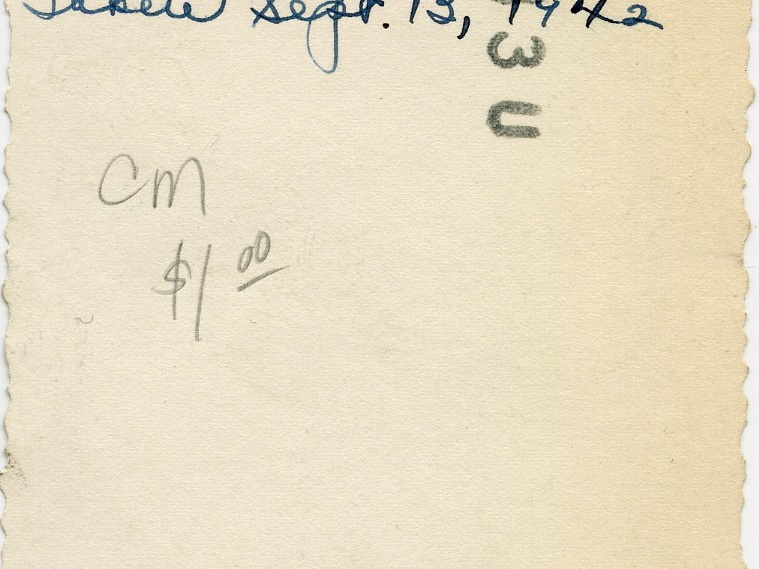 Taken Sept. 13, 1942
3U
CM
$1 00